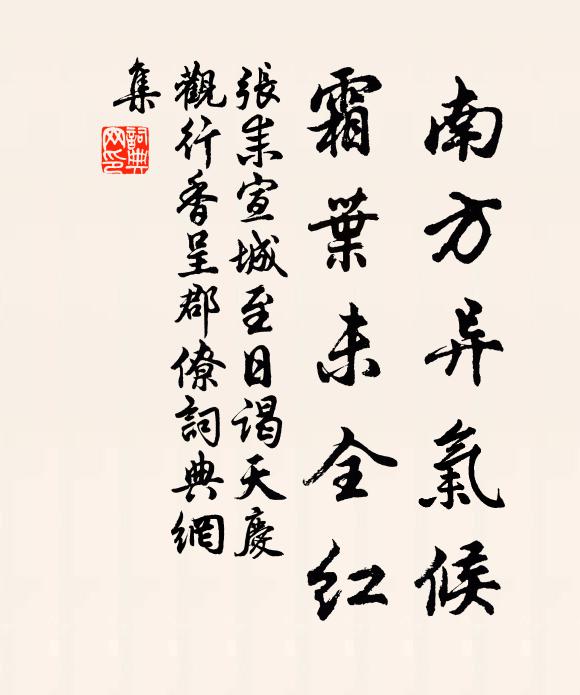 南方异氣候
霜葉未全红
張耒宣城至日謁天慶
觀行香呈郡僚詞典網
集
詞典
网印